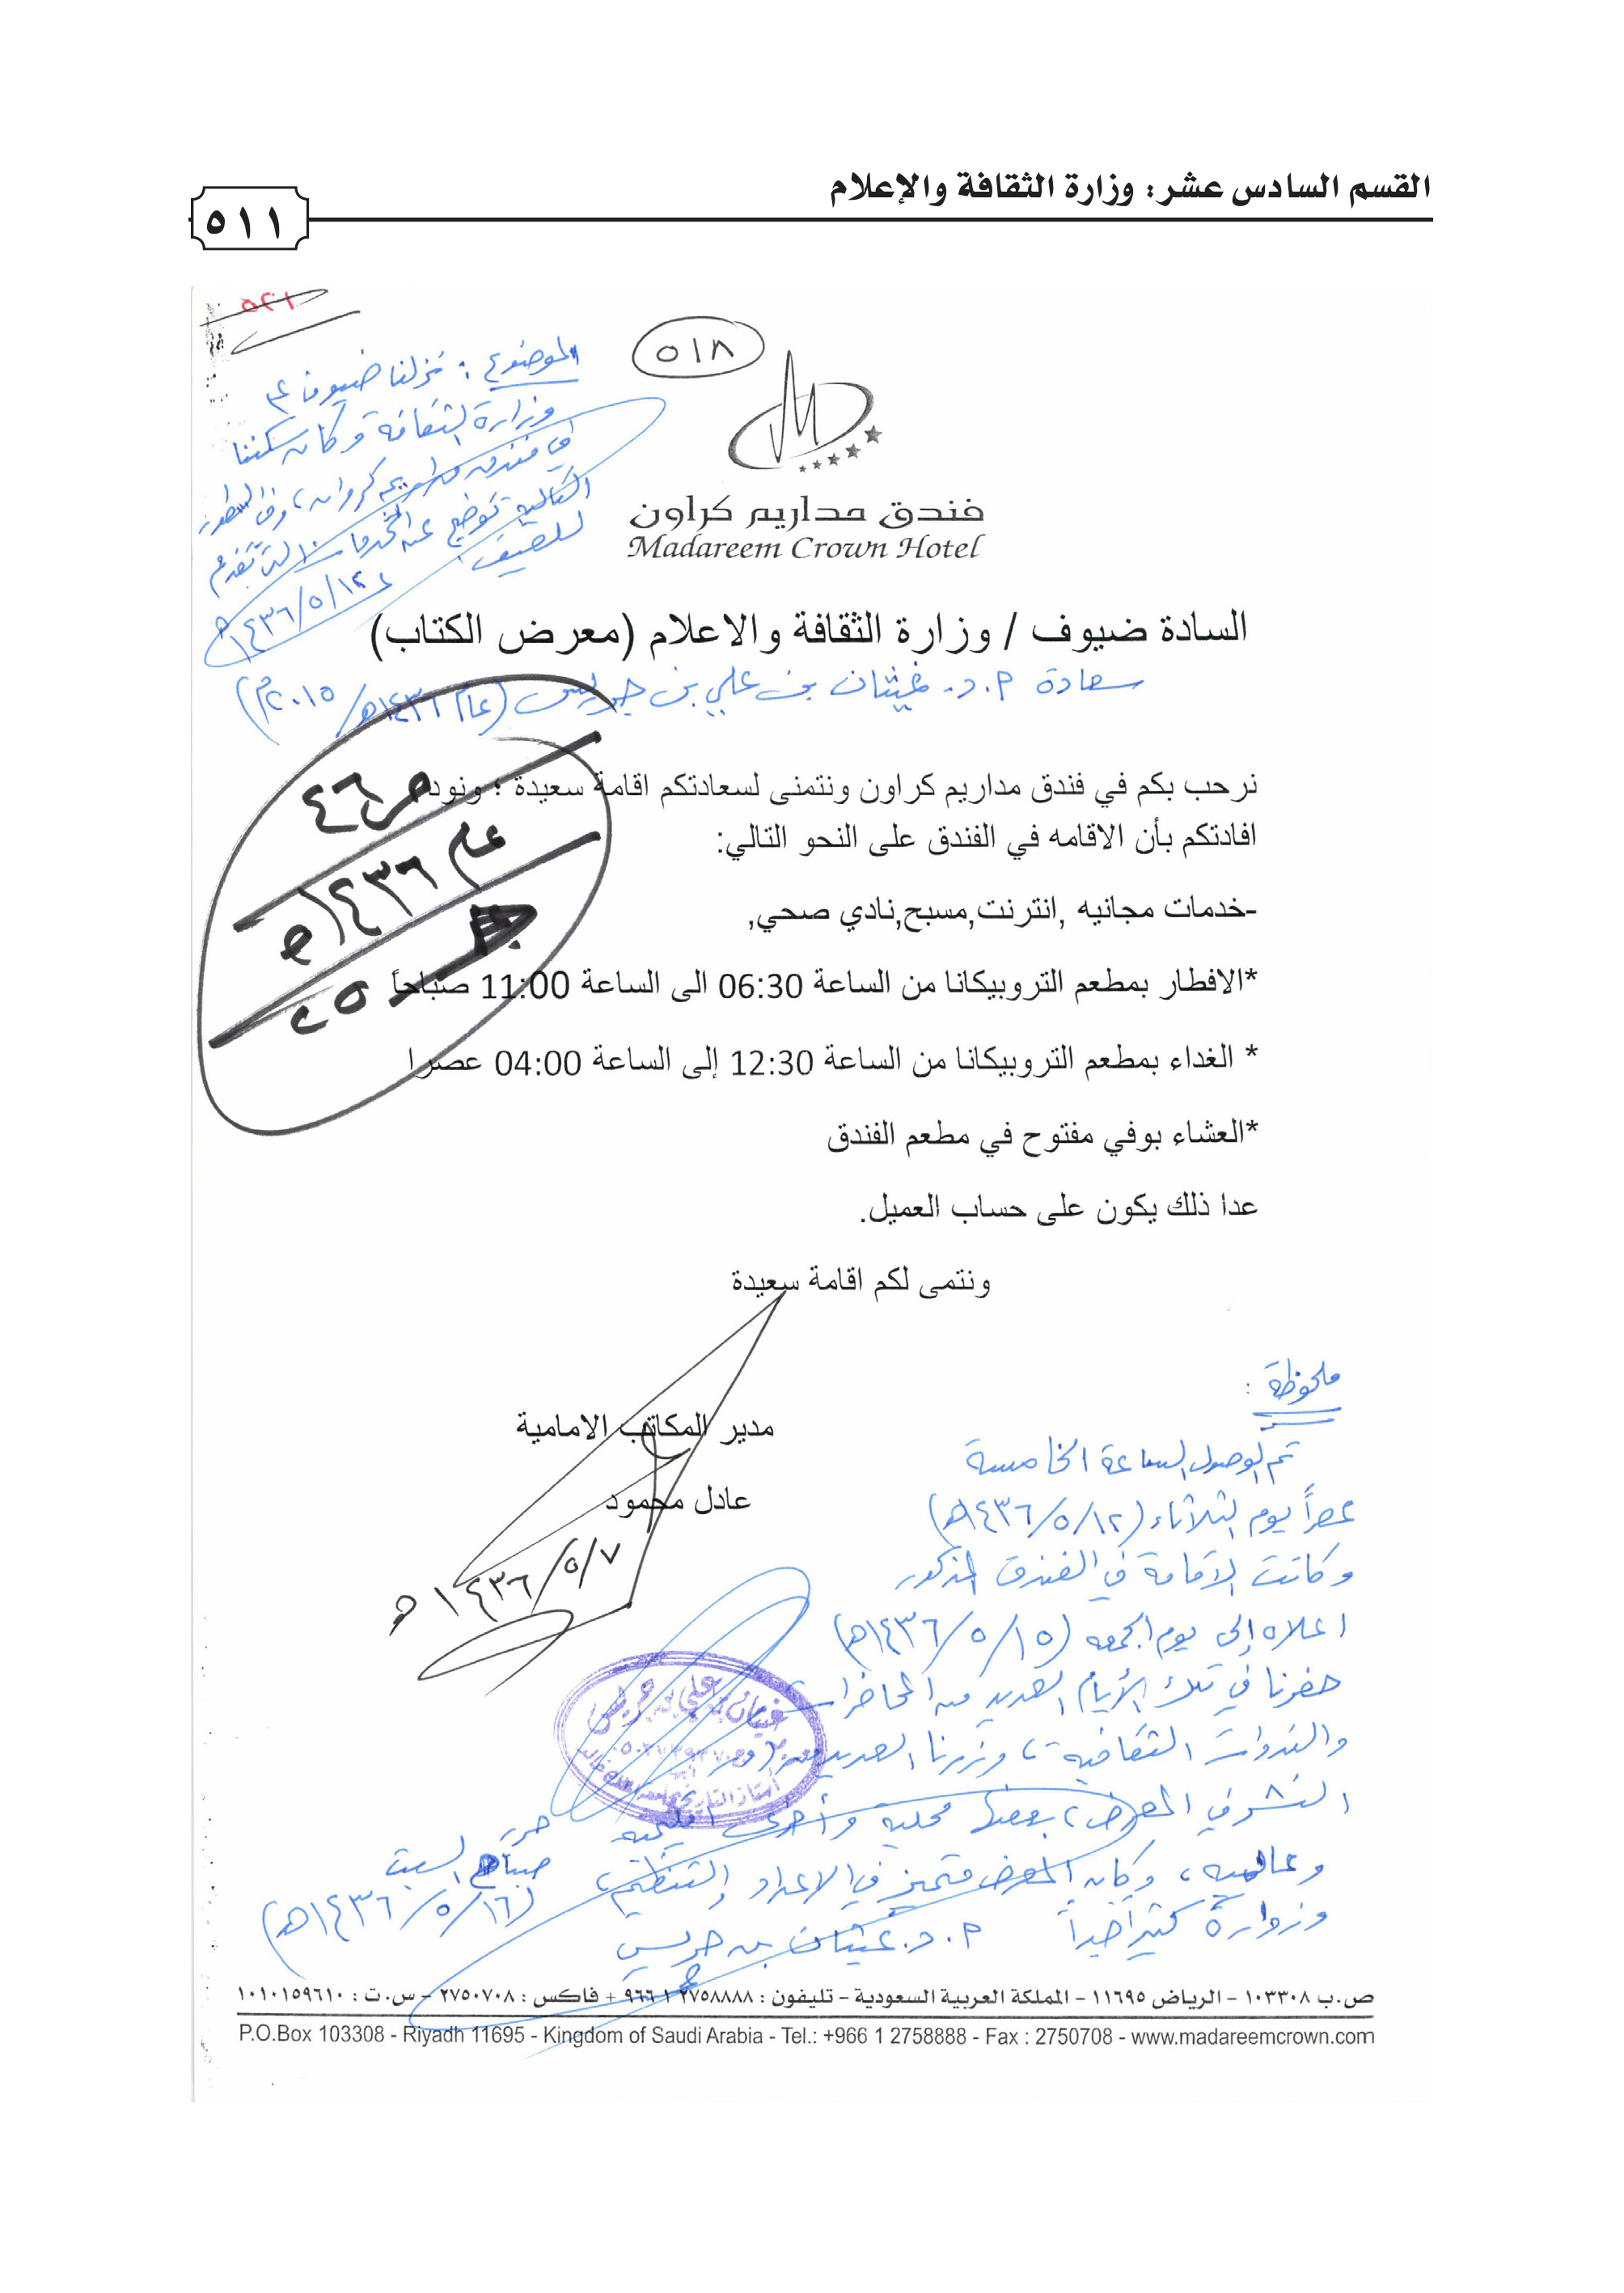 القسم السادس عشر: وزارة الثقافة والإعلام
٥١١
٥٢١
٥١٨
الموضوع: نزلنا ضيوف على
وزارة الثقافة وكان سكننا
في فندق مداريم كروان، وفي السطور
التالية توضيح عن الخدمات التي تقدم
للضيف
١٤٣٦/٥/١٢هـ
فندق مداريم كراون
Madareem Crown Hotel
السادة ضيوف / وزارة الثقافة والاعلام (معرض الكتاب)
سعادة أ.د. غيثان بن علي بن جريس (عام ١٤٣٦هـ/٢٠١٥م)
نرحب بكم في فندق مداريم كراون ونتمنى لسعادتكم اقامة سعيدة ؛ ونود
افادتكم بأن الاقامه في الفندق على النحو التالي:
ص ٤٦
عام ١٤٣٦هـ
جـ ٢٥
-خدمات مجانيه ,انترنت,مسبح,نادي صحي,
*الافطار بمطعم التروبيكانا من الساعة 06:30 الى الساعة 11:00 صباحاً
* الغداء بمطعم التروبيكانا من الساعة 12:30 إلى الساعة 04:00 عصرا
*العشاء بوفي مفتوح في مطعم الفندق
عدا ذلك يكون على حساب العميل.
ونتمى لكم اقامة سعيدة
مدير المكاتب الامامية
عادل محمود
١٤٣٦/٥/٧هـ
ملحوظة:
تم الوصول الساعة الخامسة
عصراً يوم الثلاثاء (١٤٣٦/٥/١٢هـ)
وكانت الإقامة في الفندق المذكور
اعلاه إلى يوم الجمعه (١٤٣٦/٥/١٥هـ)
حضرنا في تلك الأيام العديد من المحاضرات
والندوات الثقافية، وزرنا العديد من دور
النشر في المعرض، بعضها محلية وأخرى إقليمية
وعالمية، وكان المعرض متميز في الإعداد والتنظيم،
وزواره كثير جداً
أ.د. غيثان بن جريس
حرر
صباح السبت
(١٤٣٦/٥/١٦هـ)
غيثان بن علي بن جريس
ص.ب ١٠٣٣٠٨ - الرياض ١١٦٩٥ - المملكة العربية السعودية - تليفون : ٢٧٥٨٨٨٨ ١ ٩٦٦ + فاكس : ٢٧٥٠٧٠٨ - س.ت : ١٠١٠١٥٩٦١٠
P.O.Box 103308 - Riyadh 11695 - Kingdom of Saudi Arabia - Tel.: +966 1 2758888 - Fax : 2750708 - www.madareemcrown.com